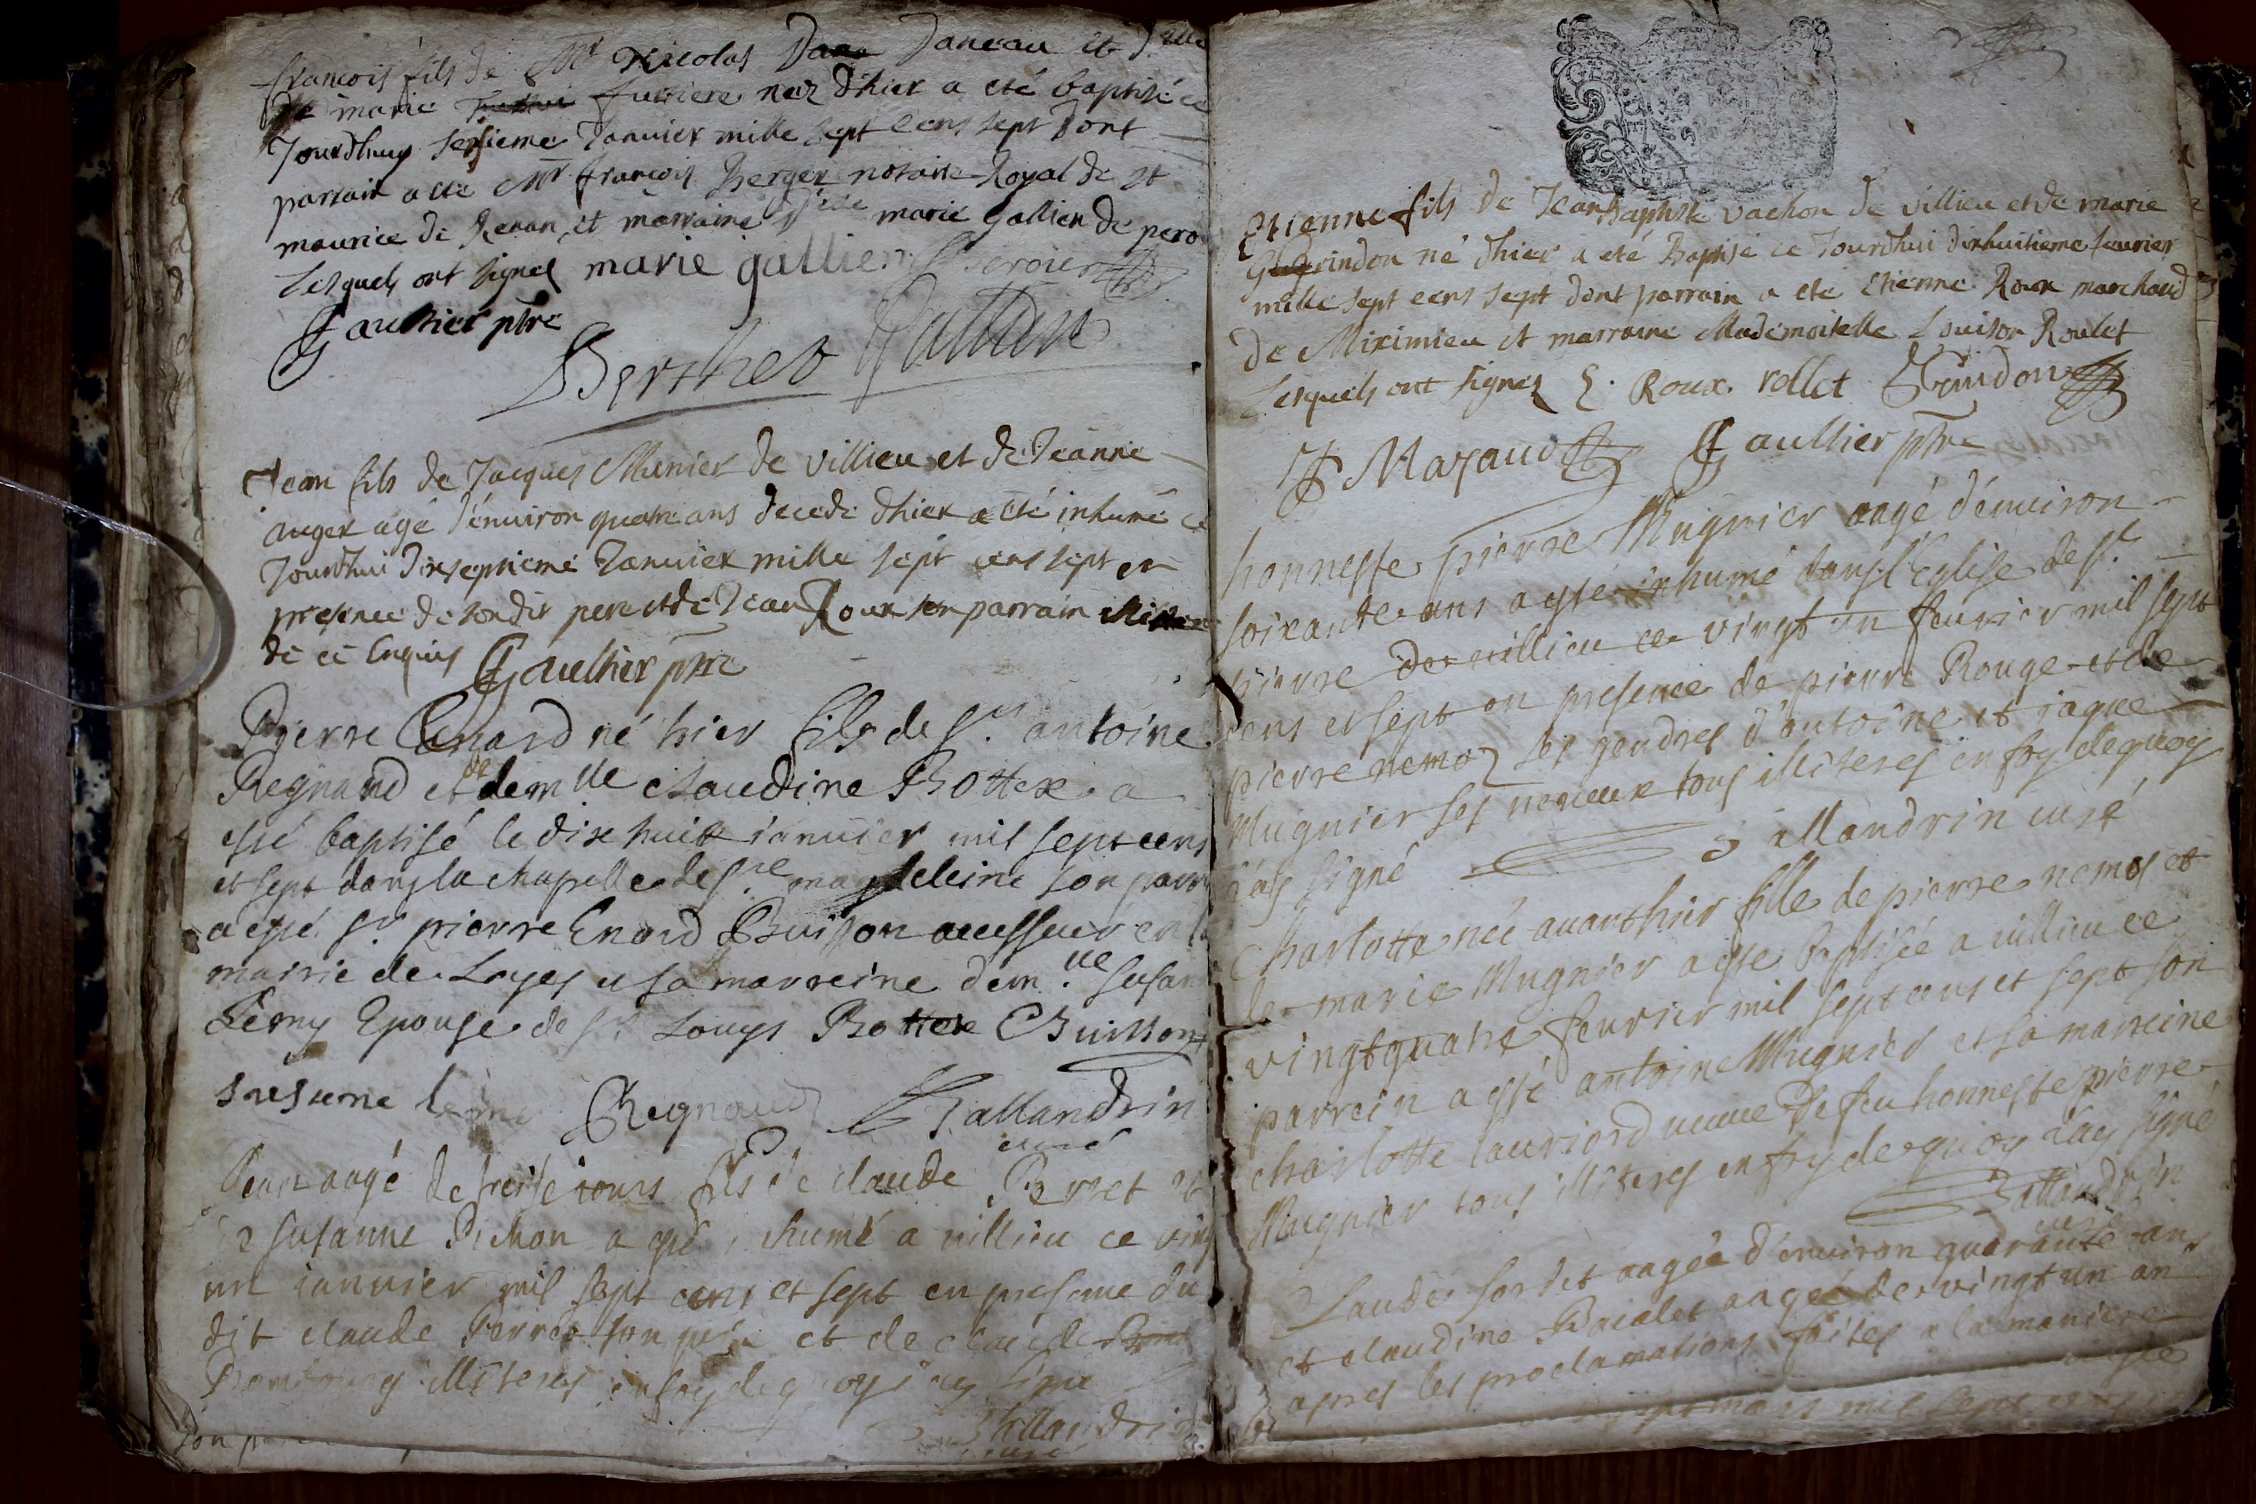 francois fils de Mr Nicolas Daneau et D.elle
marie furriere nez d'hier a eté baptisé ce
Jourdhuy sersieme Janvier mille sept cens sept dont
parrain a eté Mr françois Berger notaire Royal de st
maurice de Reman et marraine marie Gallien de pero
Lesquels ont signez marie gallien
Gaultier ptre
Berthet
Jean fils de Jacques Munier de villieu et de Jeanne
auger agé d'enuiron quatre ans decedé dhier a eté inhumé ce
Jourdhui dixseptieme Januier mille sept cens sept en
presence de sondit pere et de Jean Roux son parrain
de ce Enquis Gaultier ptre
Pierre né hier fils de sr. antoine
Regnaud et de demlle claudine Bottex a
esté baptisé le dixhuitt ianuier mil sept cens
et sept dans la chapelle de ste magdeleine son parr
a esté sr pierre Enard Buisson assesseur en la
mairrie de Loyes et sa marreine dem.lle susan
Lemy Epouse de sr Louys Bottex Buisson
sresume leme Regnaud Ballandrin
curé
aagé de treise iours fils de claude Perret et
de susanne Pichon a esté inhumé a villieu ce vint
un ianuier mil sept cens et sept en presence du
dit claude Perret son pere et de claude
illiteres enquis de quoy i'ay signé
Ballandrin
curé
Etienne fils de Jean Baptiste vachon de villieu et de marie
Guerindon né dhier a eté Baptisé ce Jourdhui dixhuitieme feurier
mille sept cens sept dont parrain a eté Etienne Roux marchand
de Miximieu et marraine Mademoiselle Louison Roulet
Lesquels ont signez E. Roux. rollet Grindon
Mayaud Gaultier ptre
honneste pierre Mugnier aagé d'enuiron
soixante ans a esté inhumé dans l'Eglise de st.
pierre de villieu ce vingt un feurier mil sept
cens et sept en presence de pierre Rouge et de
pierre nemoz ses gendres d'antoine et iaque
Mugnier ses neueux tous illiteres enquis de quoy
i'ay signé Ballandrin curé
Charlotte née auanthier fille de pierre nemos et
de marie Mugnier a esté baptisée a villieu ce
vingtquatre feurier mil sept cens et sept son
parrein a esté antoine Mugnier et sa marreine
charlotte lauriord veuue de feu honneste pierre
Mugnier tous illiteres enquis de quoy i'ay signé
Ballandrin
curé
Claude sordet aagée d'enuiron quarante ans
et claudine Baialet aagée de vingt un an
apres les proclamations faites a la maniere
mars mil sept cens